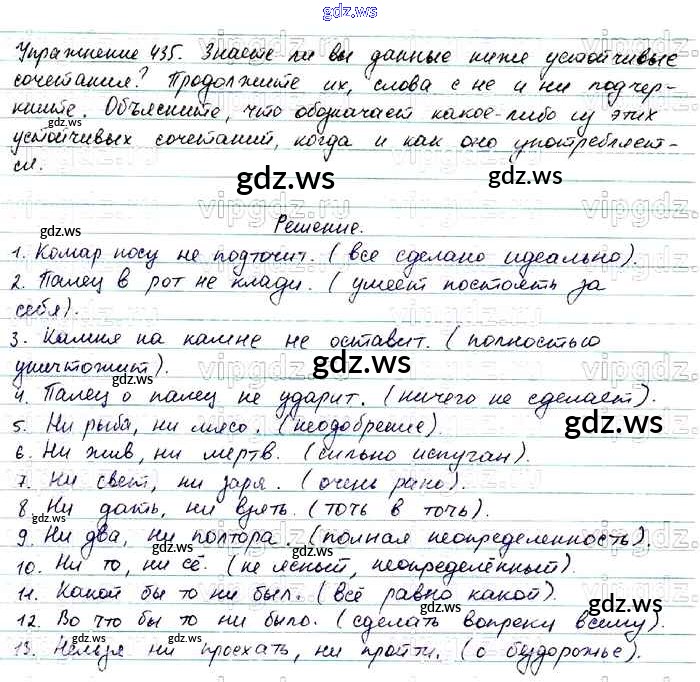 gdz.ws
Упражнение 435. Знаете ли вы данные ниже устойчивые
сочетания? Продолжите их, слова с не и ни подчер-
кните. Объясните, что обозначает какое-либо из этих
устойчивых сочетаний, когда и как оно употребляет-
ся.
Решение.
1. Комар носу не подточит. (всё сделано идеально).
2. Палец в рот не клади. (умеет постоять за
себя).
3. Камня на камне не оставит. (полностью
уничтожит).
4. Палец о палец не ударит. (ничего не сделает).
5. Ни рыба, ни мясо. (неодобрение).
6. Ни жив, ни мертв. (сильно испуган).
7. Ни свет, ни заря. (очень рано).
8. Ни дать, ни взять. (точь в точь).
9. Ни два, ни полтора. (полная неопределенность).
10. Ни то, ни сё. (не ясный, неопределённый).
11. Какой бы то ни был. (всё равно какой).
12. Во что бы то ни было. (сделать вопреки всему).
13. Нельзя ни проехать, ни пройти. (о бездорожье).